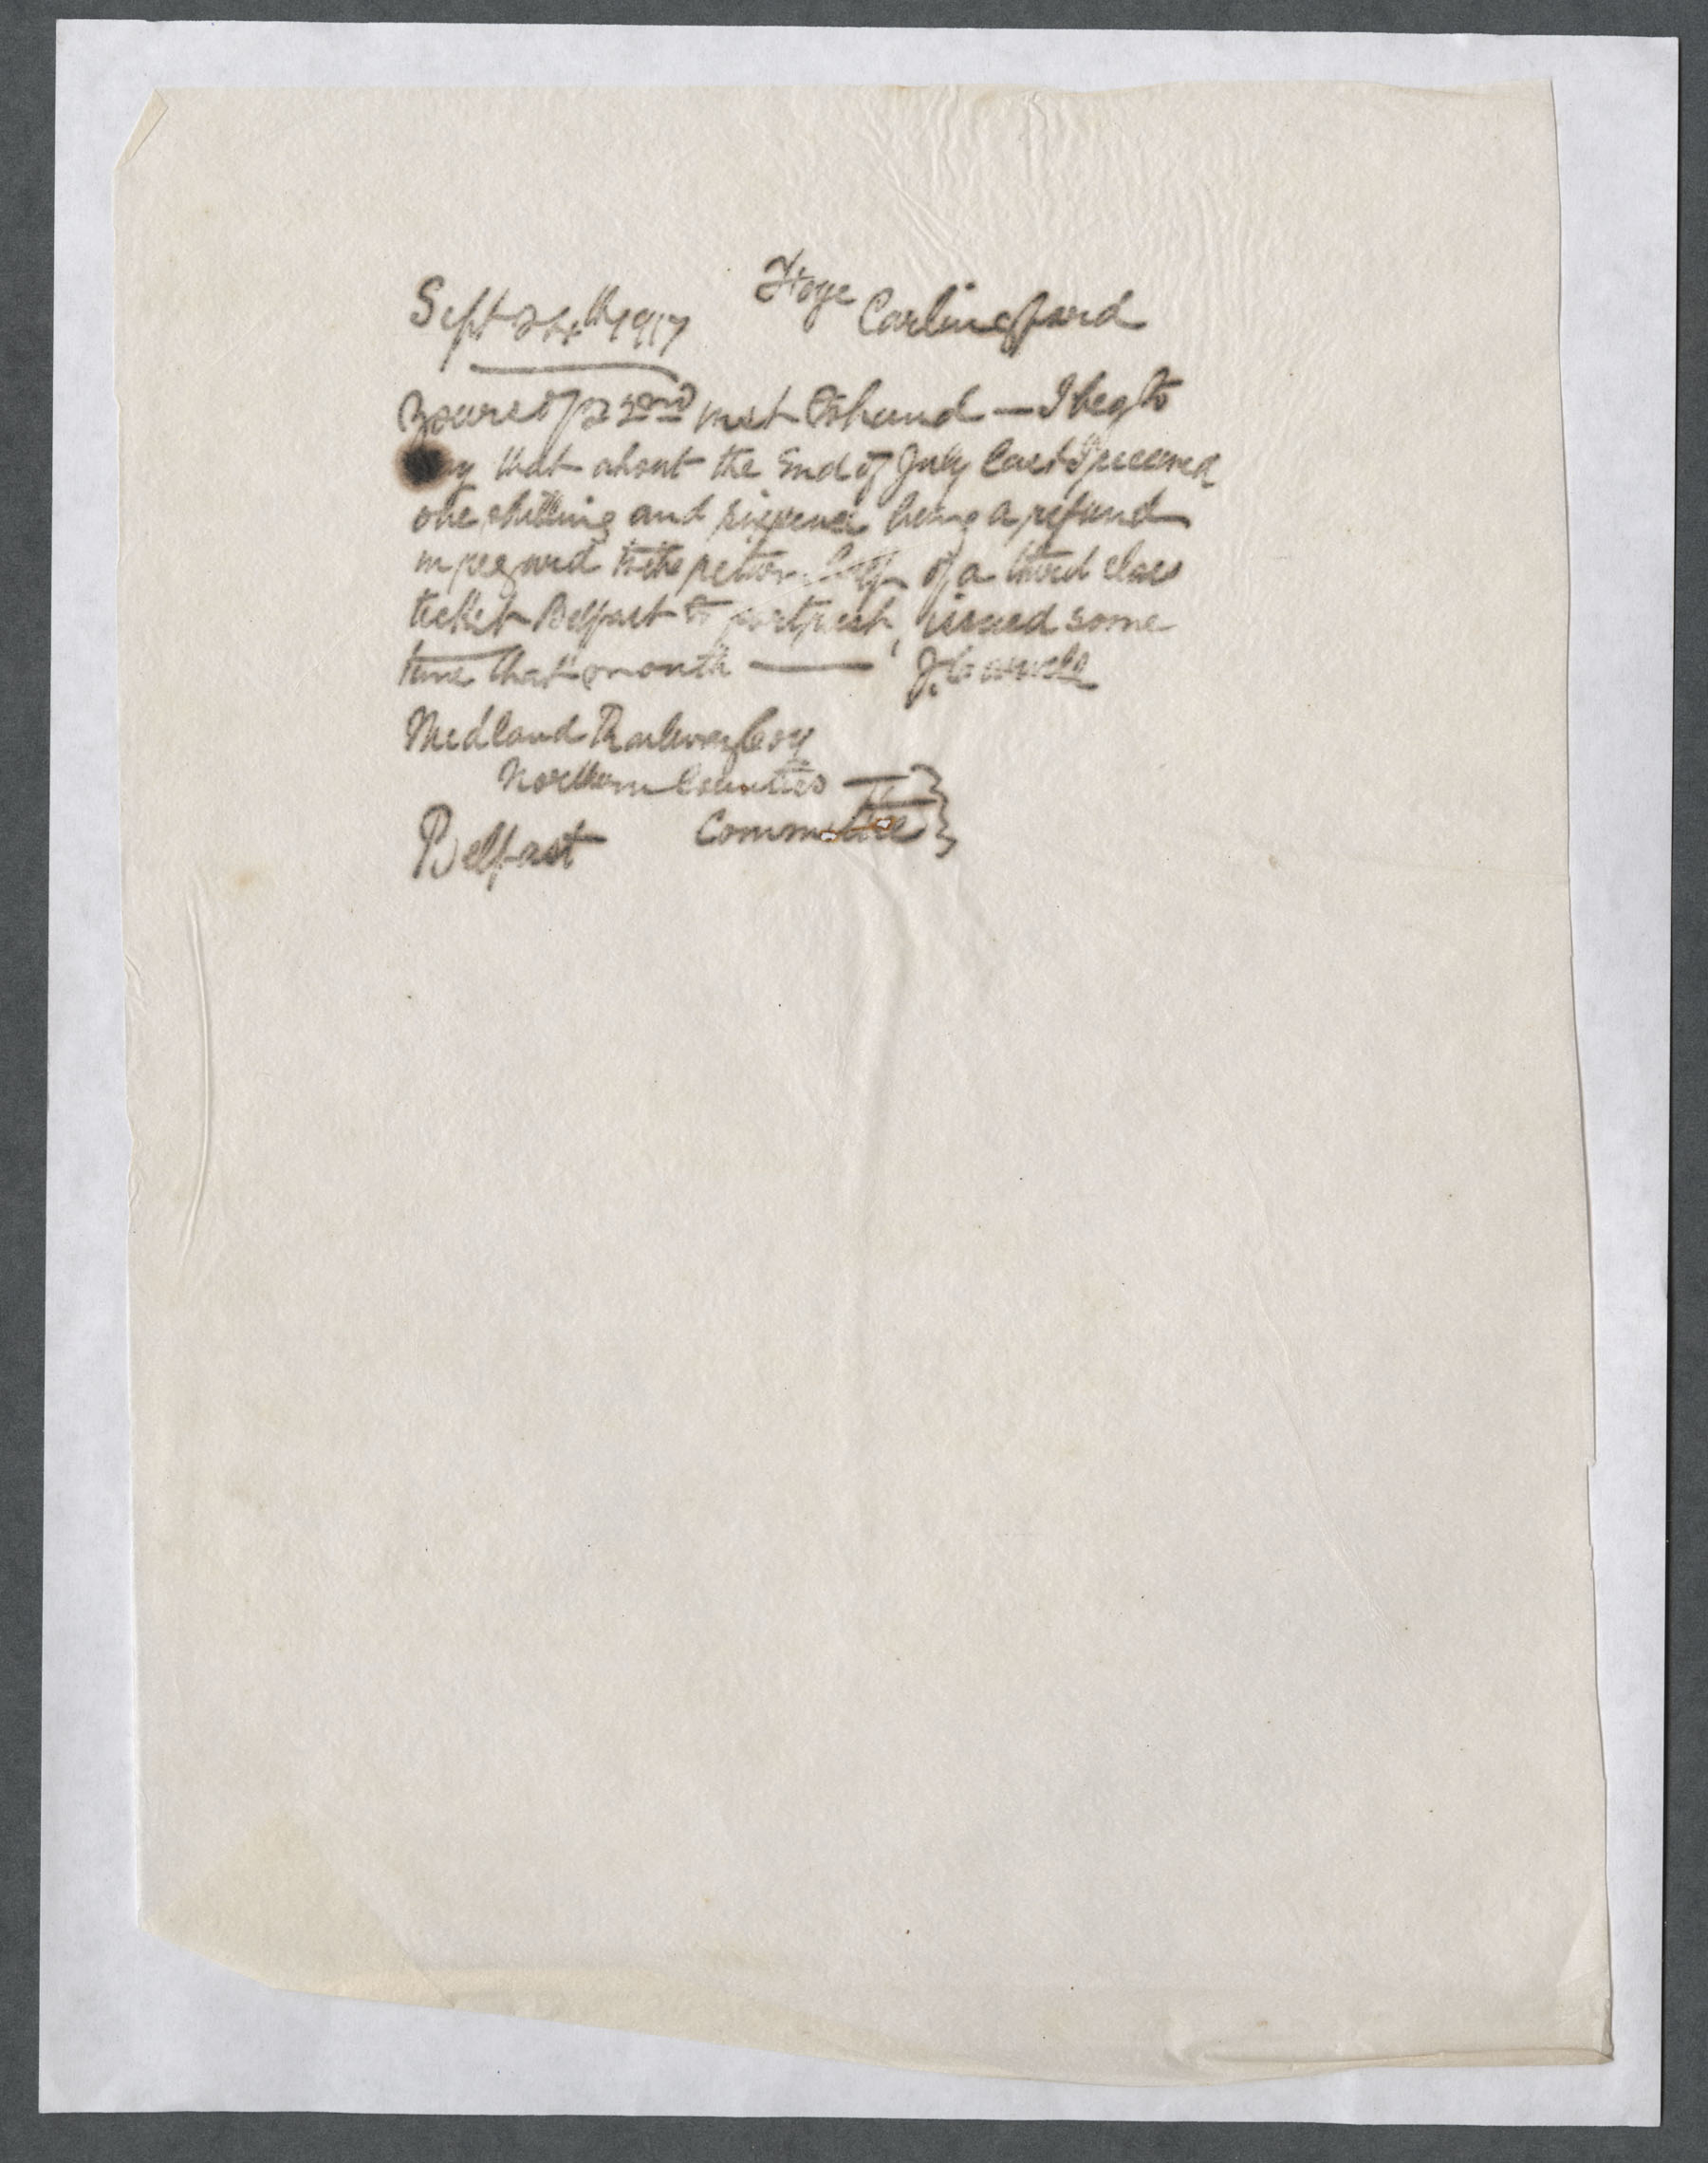 Sept 24th 1917 Carlingford
Yours of 22nd inst to hand — I beg to
say that about the End of July last I received
one shilling and sixpence being a refund
in regard to the return half of a third class
ticket Belfast to portrush, issued some
time that month —
Midland Railway Coy
Northern Counties —
Committee
Belfast